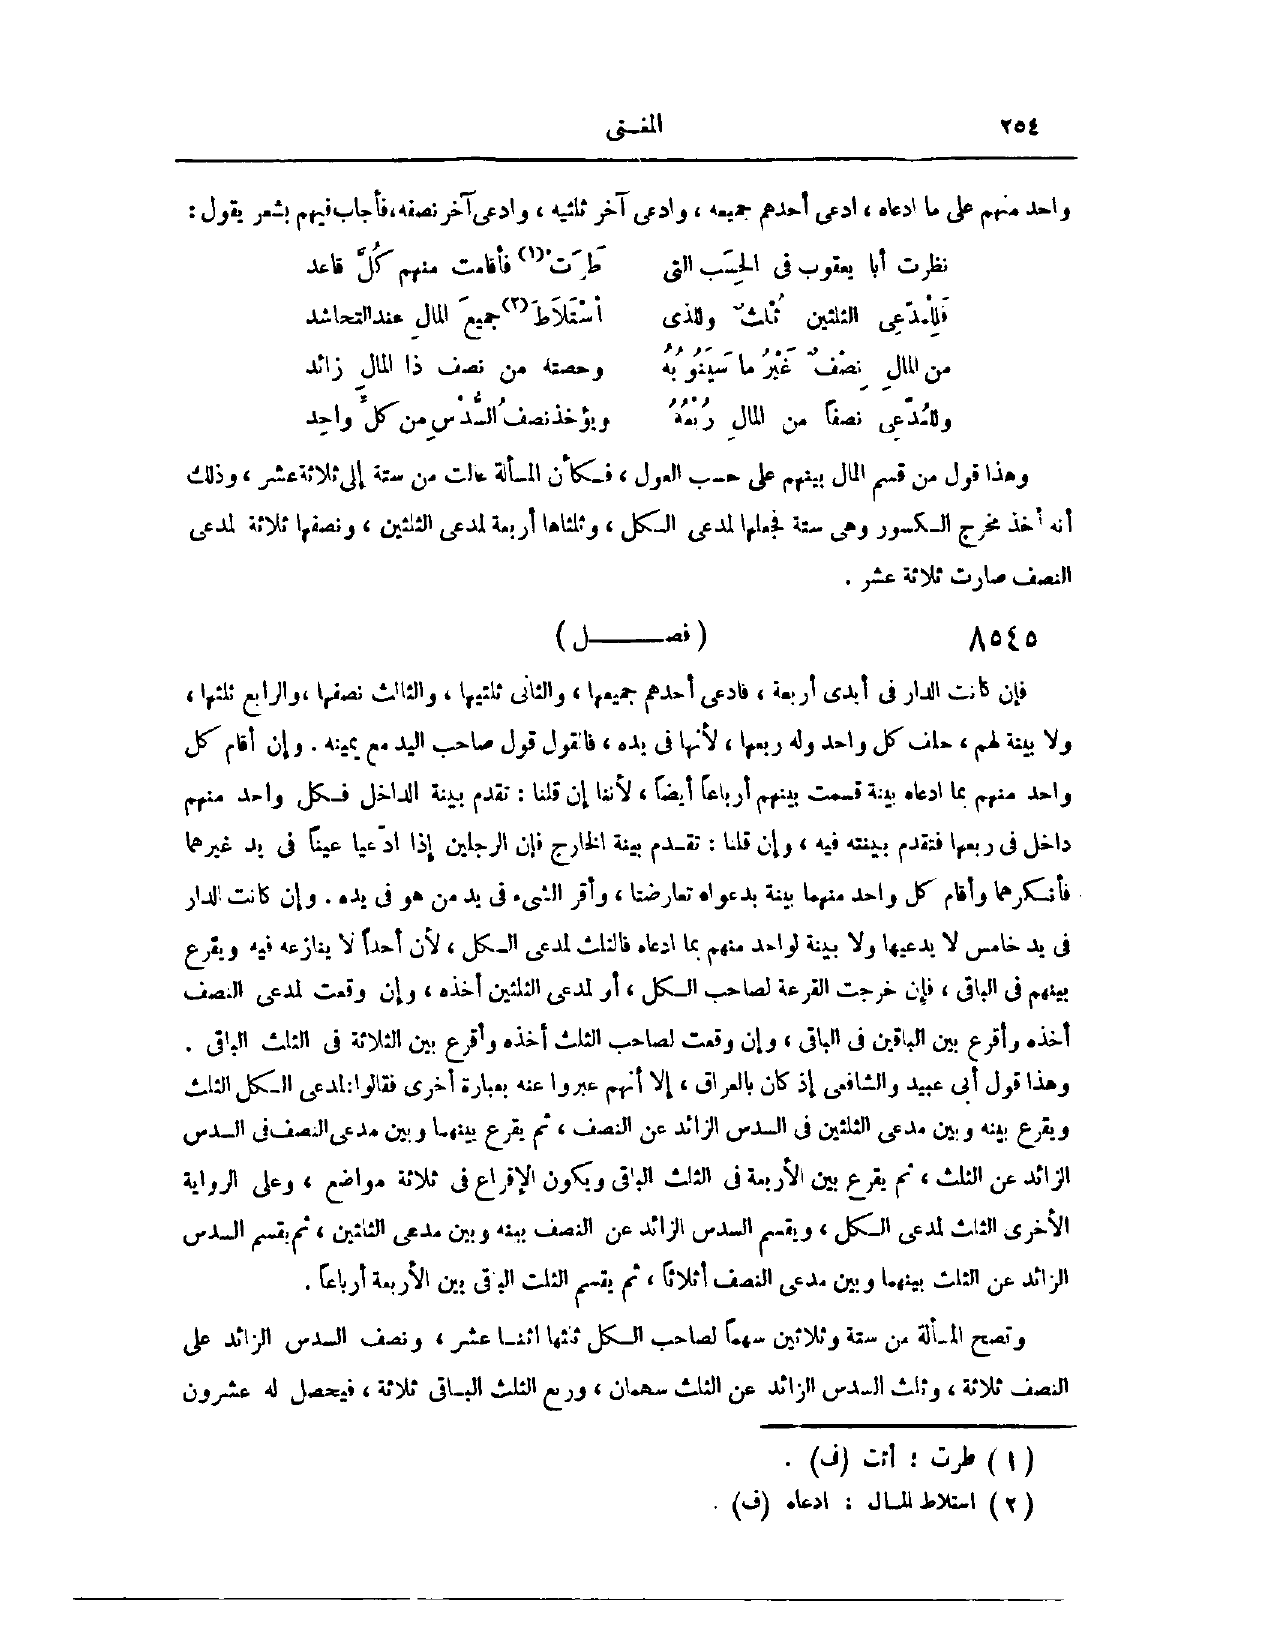 ٢٥٤ المغـنى
واحد منهم على ما ادعاه ، ادعى أحدهم جميعه ، وادعى آخر ثلثيه ، وادعى آخر نصفه، فأجاب فيهم بشعر يقول :
نظرت أبا يعقوب فى الحِسَب التى طَرَت(١) فأقامت منهم كُلَّ قاعد
فَلِلْمدّعِى الثلثين ثُلثٌ وللذى أسْتَلَاطَ(٢) جميعَ المال عند التحاشد
من المالِ نِصْفٌ غَيْرُ ما سَيَنُوبُهُ وحصته من نصف ذا المالِ زائد
وللمُدّعِى نصفاً من المالِ رُبْعُهُ ويؤخذ نصفُ السُّدْسِ من كلِّ واحِد
وهذا قول من قسم المال بينهم على حسب العول ، فـكأن المسألة عالت من ستة إلى ثلاثة عشر ، وذلك
أنه أخذ مخرج الـكسور وهى ستة فجعلها لمدعى الـكل ، وثلثاها أربعة لمدعى الثلثين ، ونصفها ثلاثة لمدعى
النصف صارت ثلاثة عشر .
٨٥٤٥ ( فصـــــــل )
فإن كانت الدار فى أيدى أربعة ، فادعى أحدهم جميعها ، والثانى ثلثيها ، والثالث نصفها ، والرابع ثلثها ،
ولا بينة لهم ، حلف كل واحد وله ربعها ، لأنها فى يده ، فالقول قول صاحب اليد مع يمينه . وإن أقام كل
واحد منهم بما ادعاه بينة قسمت بينهم أرباعاً أيضاً ، لأننا إن قلنا : تقدم بينة الداخل فـكل واحد منهم
داخل فى ربعها فتقدم بينته فيه ، وإن قلنا : تقـدم بينة الخارج فإن الرجلين إذا ادّعيا عيناً فى يد غيرهما
فأنـكرهما وأقام كل واحد منهما بينة بدعواه تعارضتا ، وأقر الشىء فى يد من هو فى يده . وإن كانت الدار
فى يد خامس لا يدعيها ولا بينة لواحد منهم بما ادعاه فالثلث لمدعى الـكل ، لأن أحداً لا ينازعه فيه ويقرع
بينهم فى الباقى ، فإن خرجت القرعة لصاحب الـكل ، أو لمدعى الثلثين أخذه ، وإن وقعت لمدعى النصف
أخذه وأقرع بين الباقين فى الباقى ، وإن وقعت لصاحب الثلث أخذه وأقرع بين الثلاثة فى الثلث الباقى .
وهذا قول أبى عبيد والشافعى إذ كان بالعراق ، إلا أنهم عبروا عنه بعبارة أخرى فقالوا: لمدعى الـكل الثلث
ويقرع بينه وبين مدعى الثلثين فى السدس الزائد عن النصف ، ثم يقرع بينهما وبين مدعى النصف فى السدس
الزائد عن الثلث ، ثم يقرع بين الأربعة فى الثلث الباقى ويكون الإقراع فى ثلاثة مواضع ، وعلى الرواية
الأخرى الثلث لمدعى الـكل ، ويقسم السدس الزائد عن النصف بينه وبين مدعى الثلثين ، ثم يقسم السدس
الزائد عن الثلث بينهما وبين مدعى النصف أثلاثاً ، ثم يقسم الثلث الباقى بين الأربعة أرباعاً .
وتصح المسألة من ستة وثلاثين سهماً لصاحب الـكل ثلثها اثنـا عشر ، ونصف السدس الزائد على
النصف ثلاثة ، وثلث السدس الزائد عن الثلث سهمان ، وربع الثلث البـاقى ثلاثة ، فيحصل له عشرون
( ١ ) طرت : أتت (ف) .
( ٢ ) استلاط المـال : ادعاه (ف) .